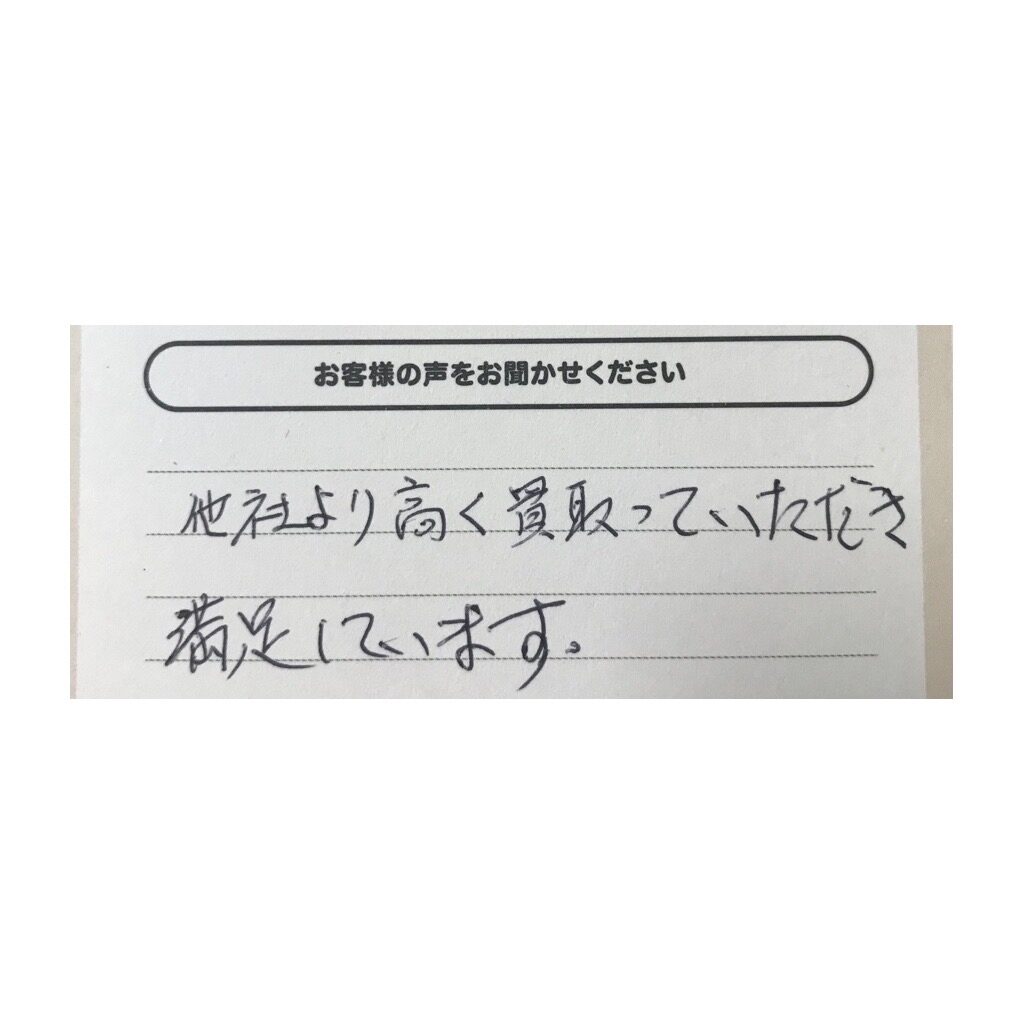 お客様の声をお聞かせください
他社より高く買取っていただき
満足しています。